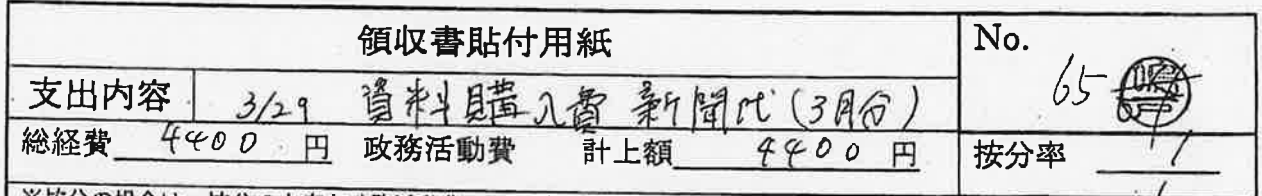 領収書貼付用紙
No. 65
支出内容 3/29 資料購入費 新聞代(3月分)
総経費 4400 円 政務活動費 計上額 4400 円 按分率 1/1